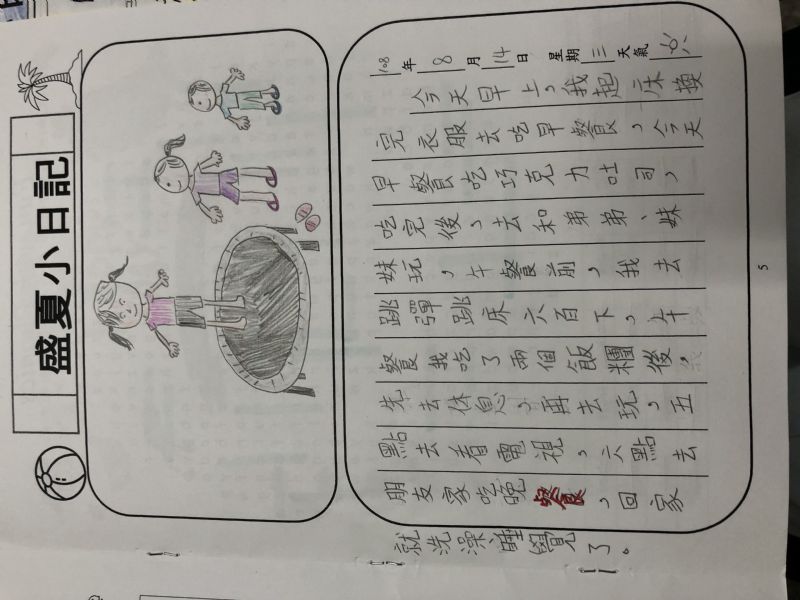 盛夏小日記
108年8月14日星期三天氣
今天早上,我起床換
完衣服去吃早餐,今天
早餐吃巧克力吐司,
吃完後,去和弟弟、妹
妹玩,午餐前,我去
跳彈跳床六百下,午
餐我吃了兩個飯糰後,
先去休息,再去玩,五
點去看電視,六點去
朋友家吃晚餐,回家
就洗澡睡覺了。
5